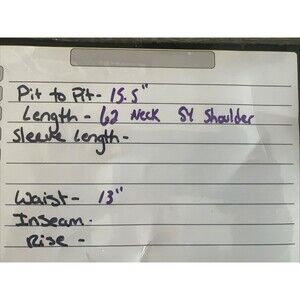 Pit to Pit- 15.5"
Length - 62 Neck 54 Shoulder
Sleeve Length-
Waist- 13"
Inseam.
Rise -